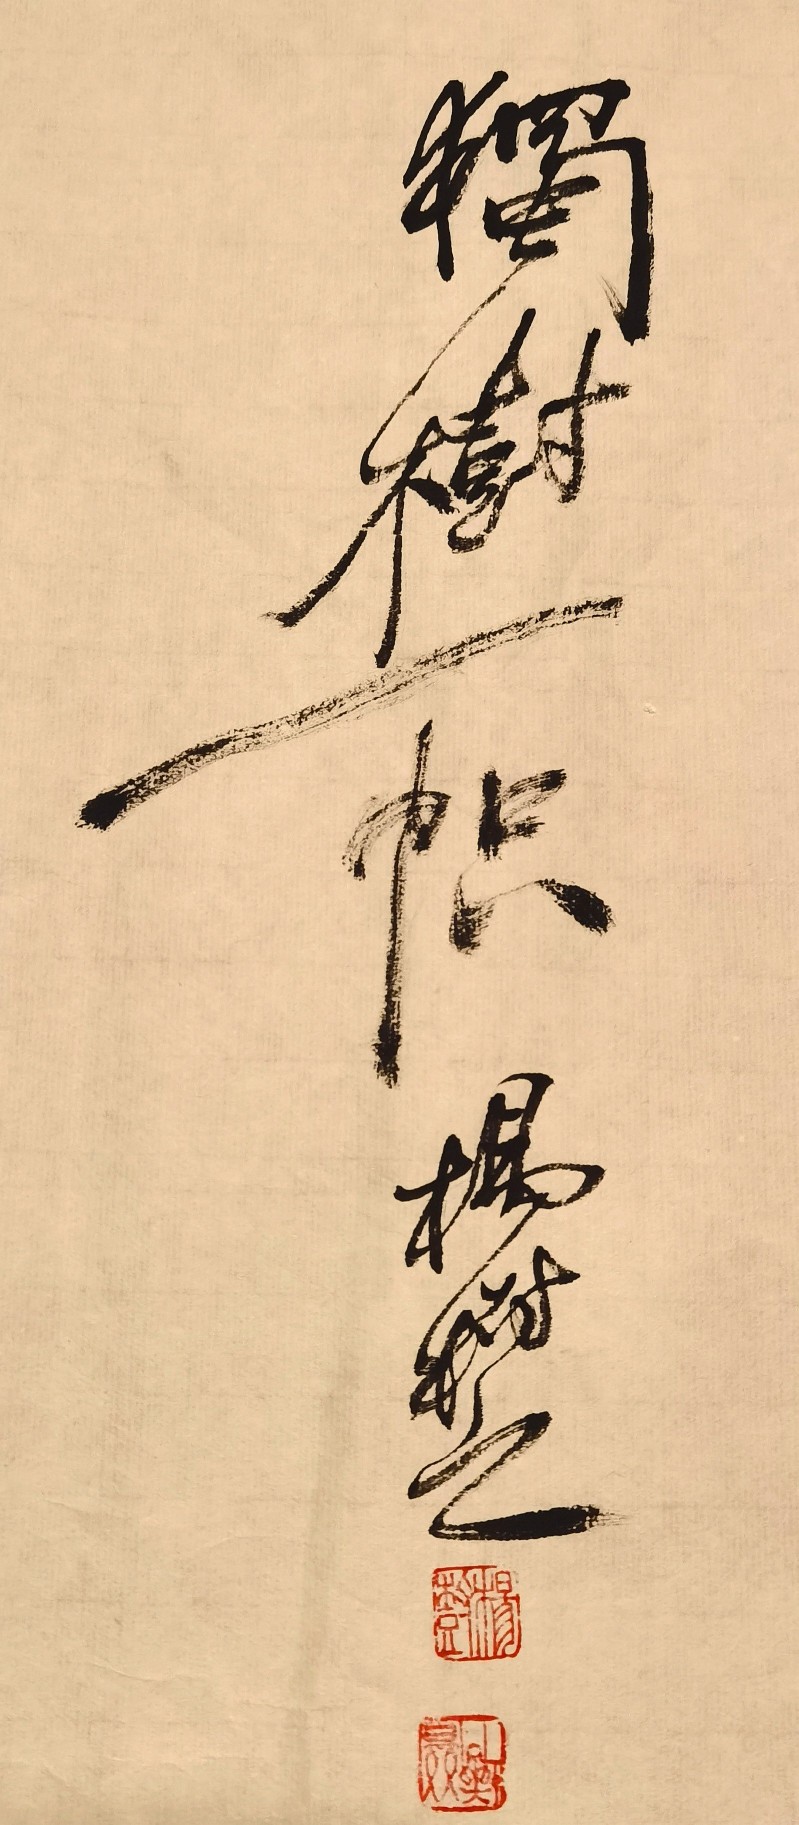 獨樹一帜
楊樹之